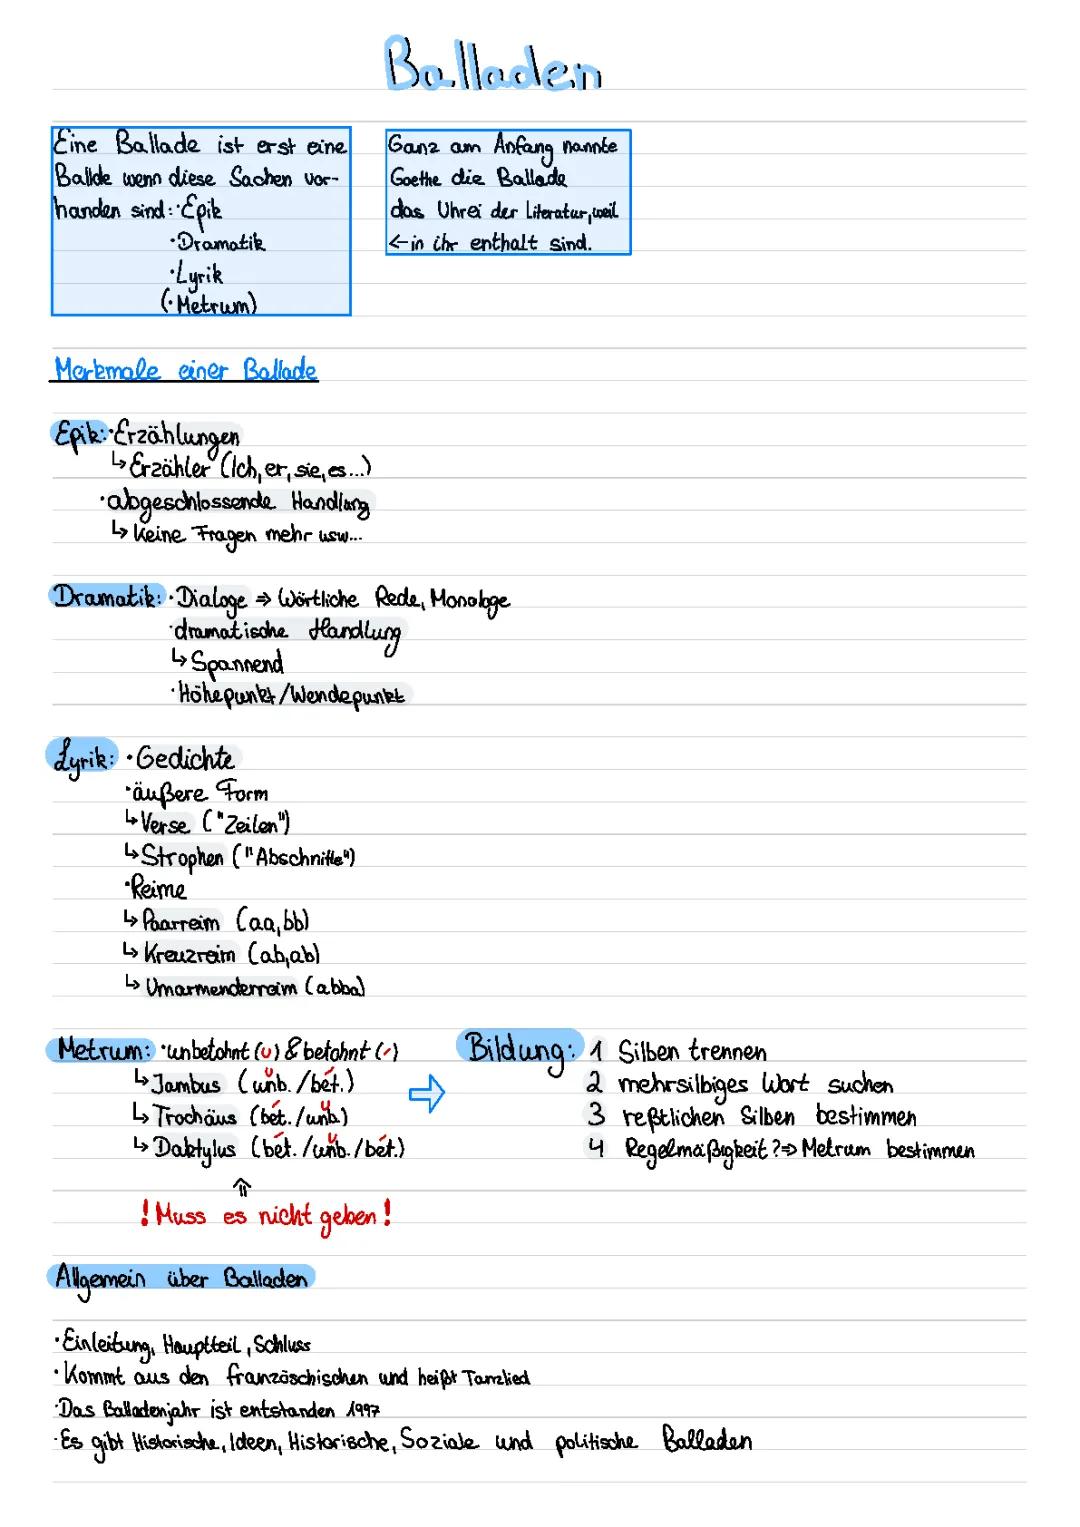 Balladen
Eine Ballade ist erst eine
Ballde wenn diese Sachen vor-
handen sind: · Epik
· Dramatik
· Lyrik
(· Metrum)
Ganz am Anfang nannte
Goethe die Ballade
das Uhrei der Literatur, weil
← in ihr enthalt sind.
Merkmale einer Ballade
Epik: · Erzählungen
↳ Erzähler (Ich, er, sie, es...)
· abgeschlossende Handlung
↳ Keine Fragen mehr usw...
Dramatik: · Dialoge ⇒ Wörtliche Rede, Monologe
· dramatische Handlung
↳ Spannend
· Höhepunkt/Wendepunkt
Lyrik: · Gedichte
· äußere Form
↳ Verse ("Zeilen")
↳ Strophen ("Abschnitte")
· Reime
↳ Paarreim (aa,bb)
↳ Kreuzreim (ab,ab)
↳ Umarmenderreim (abba)
Metrum: · unbetohnt (u) & betohnt (-)
↳ Jambus (unb./bet.)
↳ Trochäus (bet./unb.)
↳ Daktylus (bet./unb./bet.)
! Muss es nicht geben !
Bildung: 1 Silben trennen
2 mehrsilbiges Wort suchen
3 reßtlichen Silben bestimmen
4 Regelmäßigkeit? ⇒ Metrum bestimmen
Allgemein über Balladen
· Einleitung, Hauptteil, Schluss
· Kommt aus den französchischen und heißt Tanzlied
· Das Balladenjahr ist entstanden 1997
· Es gibt Historische, Ideen, Historische, Soziale und politische Balladen